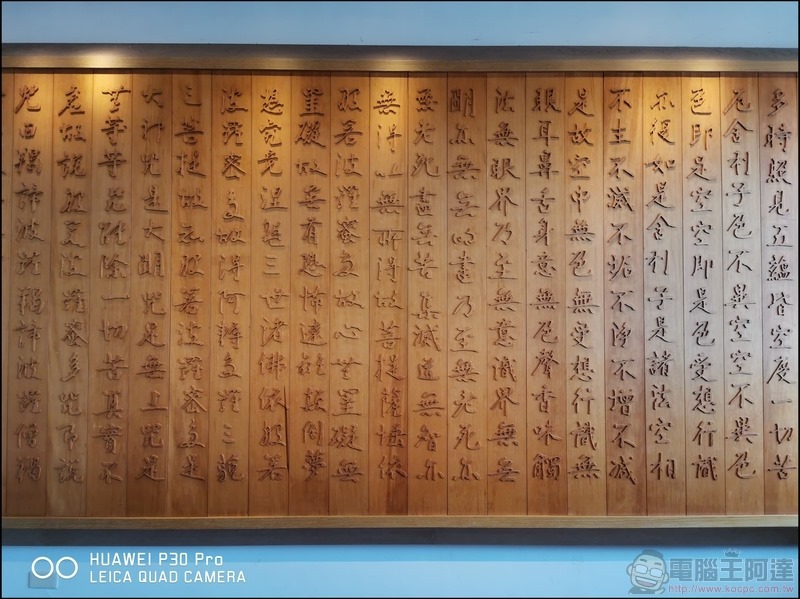 多時照見五蘊皆空度一切苦
厄舍利子色不異空空不異色
色即是空空即是色受想行識
亦復如是舍利子是諸法空相
不生不滅不垢不淨不增不減
是故空中無色無受想行識無
眼耳鼻舌身意無色聲香味觸
法無眼界乃至無意識界無無
明亦無無明盡乃至無老死亦
無老死盡無苦集滅道無智亦
無得以無所得故菩提薩埵依
般若波羅蜜多故心無罣礙無
罣礙故無有恐怖遠離顛倒夢
想究竟涅槃三世諸佛依般若
波羅蜜多故得阿耨多羅三藐
三菩提故知般若波羅蜜多是
大神咒是大明咒是無上咒是
無等等咒能除一切苦真實不
虛故說般若波羅蜜多咒即說
咒曰揭諦波羅揭諦波羅僧揭
HUAWEI P30 Pro
LEICA QUAD CAMERA
電腦王阿達
http://www.kocpc.com.tw